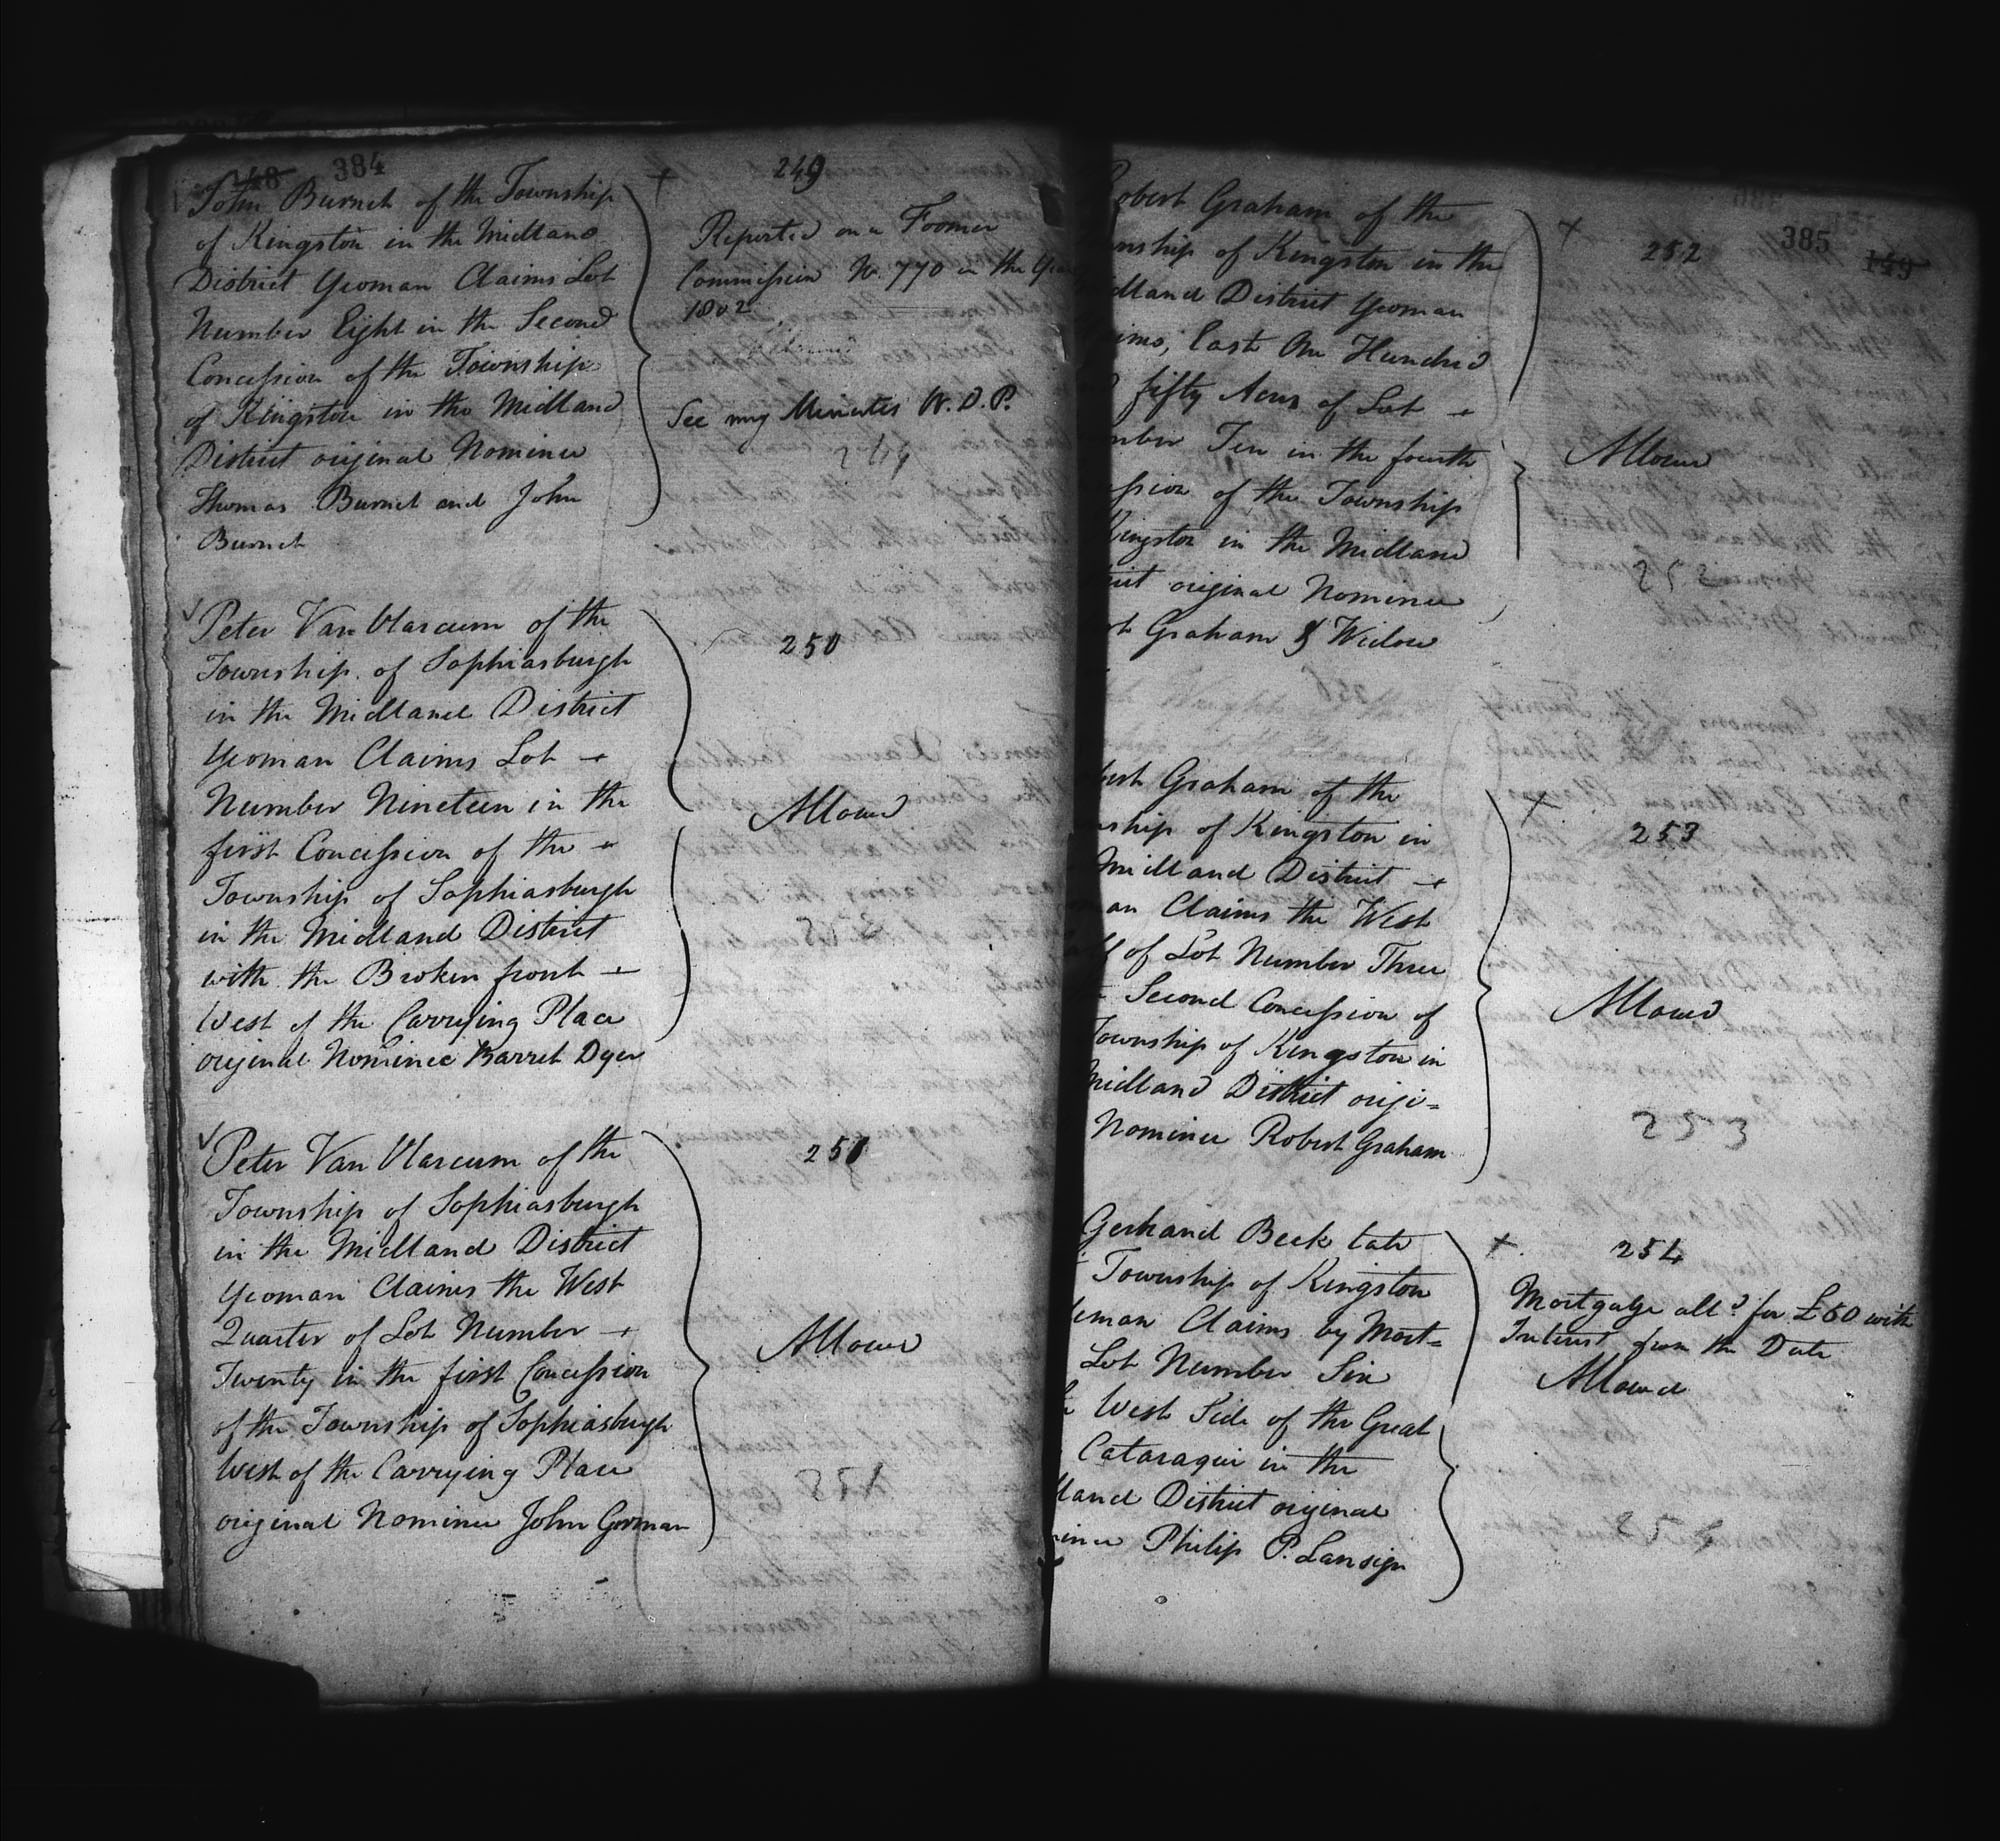 148 384
John Burnet of the Township
of Kingston in the Midland
District Yeoman Claims Lot
Number Eight in the Second
Concession of the Township
of Kingston in the Midland
District original Nominee
Thomas Burnet and John
Burnet
+ 249
Reported on a Former
Commission No. 770 in the Year
1802
See my Minutes W. D. P.
Peter Van Alarcum of the
Township of Sophiasburgh
in the Midland District
Yeoman Claims Lot
Number Nineteen in the
first Concession of the
Township of Sophiasburgh
in the Midland District
with the Broken front
West of the Carrying Place
original Nominee Barret Dyer
250
Allowed
Peter Van Alarcum of the
Township of Sophiasburgh
in the Midland District
Yeoman Claims the West
Quarter of Lot Number
Twenty in the first Concession
of the Township of Sophiasburgh
West of the Carrying Place
original Nominee John Gorman
251
Allowed
251
385 149
obert Graham of the
nship of Kingston in the
dland District Yeoman
ims, East One Hundred
fifty Acres of Lot
mber Ten in the fourth
ssion of the Township
Kingston in the Midland
rict original Nominee
Graham & Widow
+ 252
Allowed
252
Graham of the
nship of Kingston in
Midland District
an Claims the West
of Lot Number Three
Second Concession of
Township of Kingston in
Midland District origi=
Nominee Robert Graham
+ 253
Allowed
253
Gerhand Beek late
Township of Kingston
eman Claims by Mort=
Lot Number Six
West Side of the Great
Cataraqui in the
land District original
inee Philip P. Lansign
+ 254
Mortgage alld for £60 with
Interest from the Date
Allowed
254